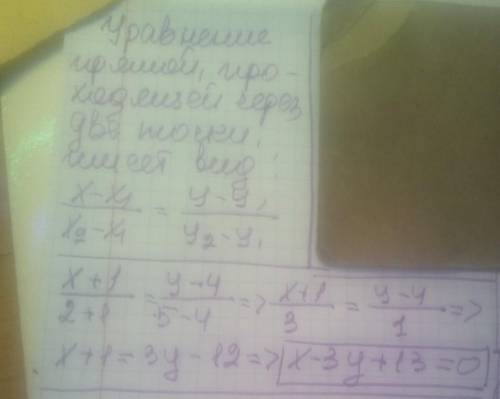 Уравнение
прямой, про-
ходящей через
две точки,
имеет вид:
x-x₁/x₂-x₁ = y-y₁/y₂-y₁
x+1/2+1 = y-4/5-4 => x+1/3 = y-4/1 =>
x+1=3y-12 => x-3y+13=0